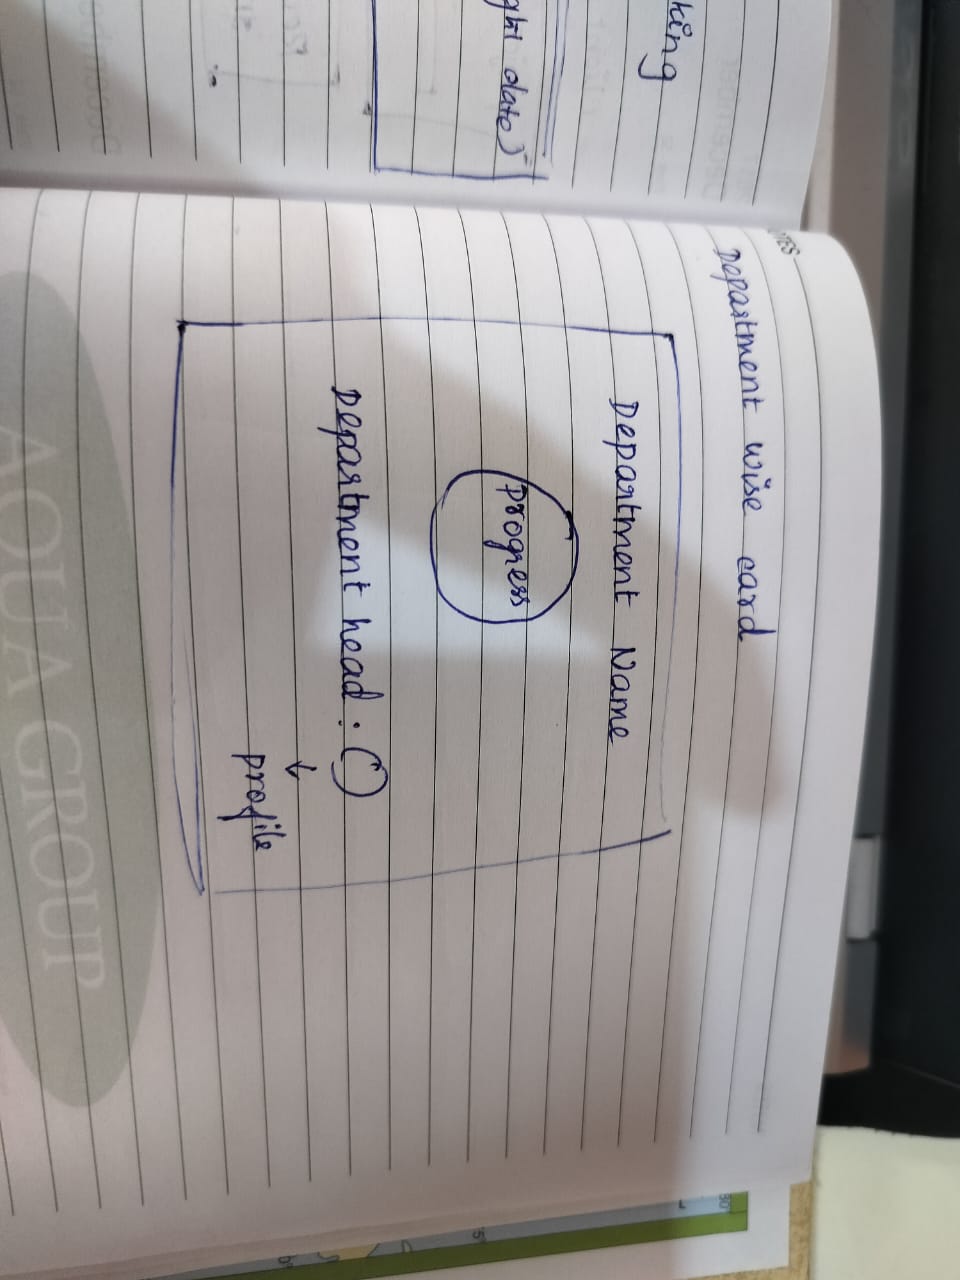 king
ght date)
Department wise card
Department Name
Progress
Department head :
profile
AQUA GROUP